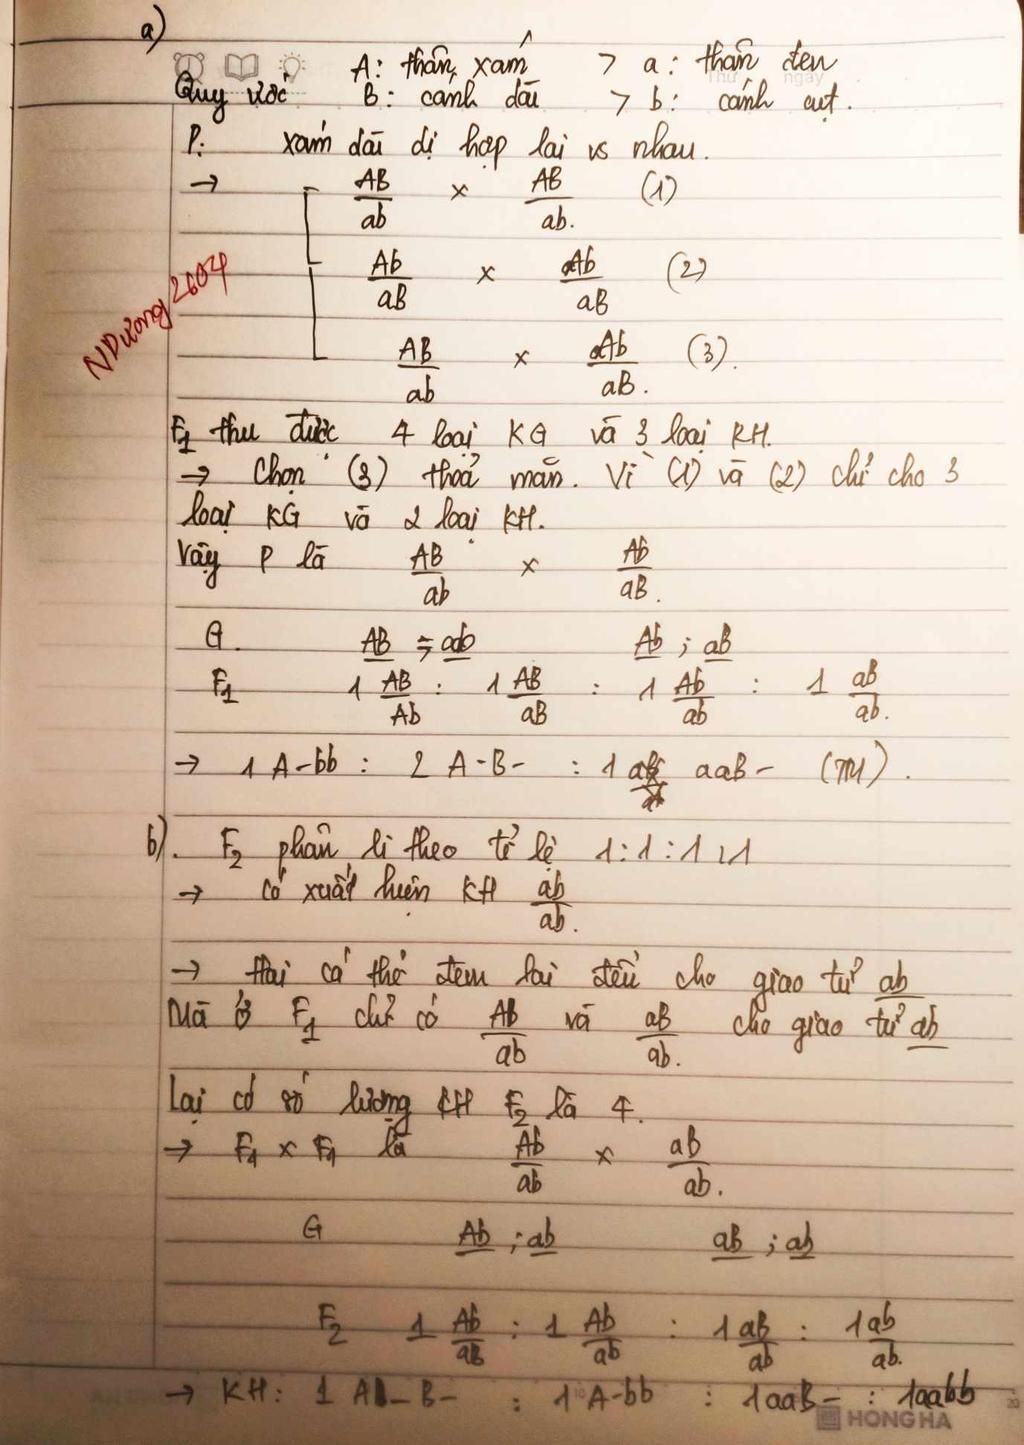 a)
A: thân xám > a: thân đen
Quy ước B: cánh dài > b: cánh cụt.
P: xám dài dị hợp lai vs nhau.
→ AB/ab × AB/ab. (1)
Ab/aB × Ab/aB (2)
NDương2604
AB/ab × Ab/aB. (3).
F1 thu được 4 loại KG và 3 loại KH.
→ Chọn (3) thoả mãn. Vì (1) và (2) chỉ cho 3
loại KG và 2 loại KH.
Vậy P là AB/ab × Ab/aB.
G. AB ; ab Ab ; aB
F1 1 AB/Ab : 1 AB/aB : 1 Ab/ab : 1 aB/ab.
→ 1 A-bb : 2 A-B- : 1 aaB- (TM).
b). F2 phân li theo tỉ lệ 1:1:1:1
→ có xuất hiện KH ab/ab.
→ Hai cá thể đem lai đều cho giao tử ab
Mà ở F1 chỉ có Ab/ab và aB/ab. cho giao tử ab
Lại có số lượng KH F2 là 4.
→ F1 × F1 là Ab/ab × aB/ab.
G Ab ; ab aB ; ab
F2 1 Ab/aB : 1 Ab/ab : 1 aB/ab : 1 ab/ab.
→ KH: 1 A-B- : 1 A-bb : 1aaB- : 1aabb
HONG HA